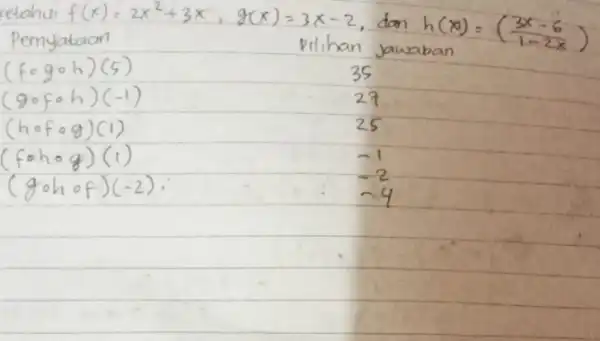 f(x) = 2x² + 3x, g(x) = 3x - 2, dan h(x) = (3x - 6 / 1 - 2x)
Pernyataan Pilihan Jawaban
(f∘g∘h)(5) 35
(g∘f∘h)(-1) 27
(h∘f∘g)(1) 25
(f∘h∘g)(1) -1
-2
(g∘h∘f)(-2). -4